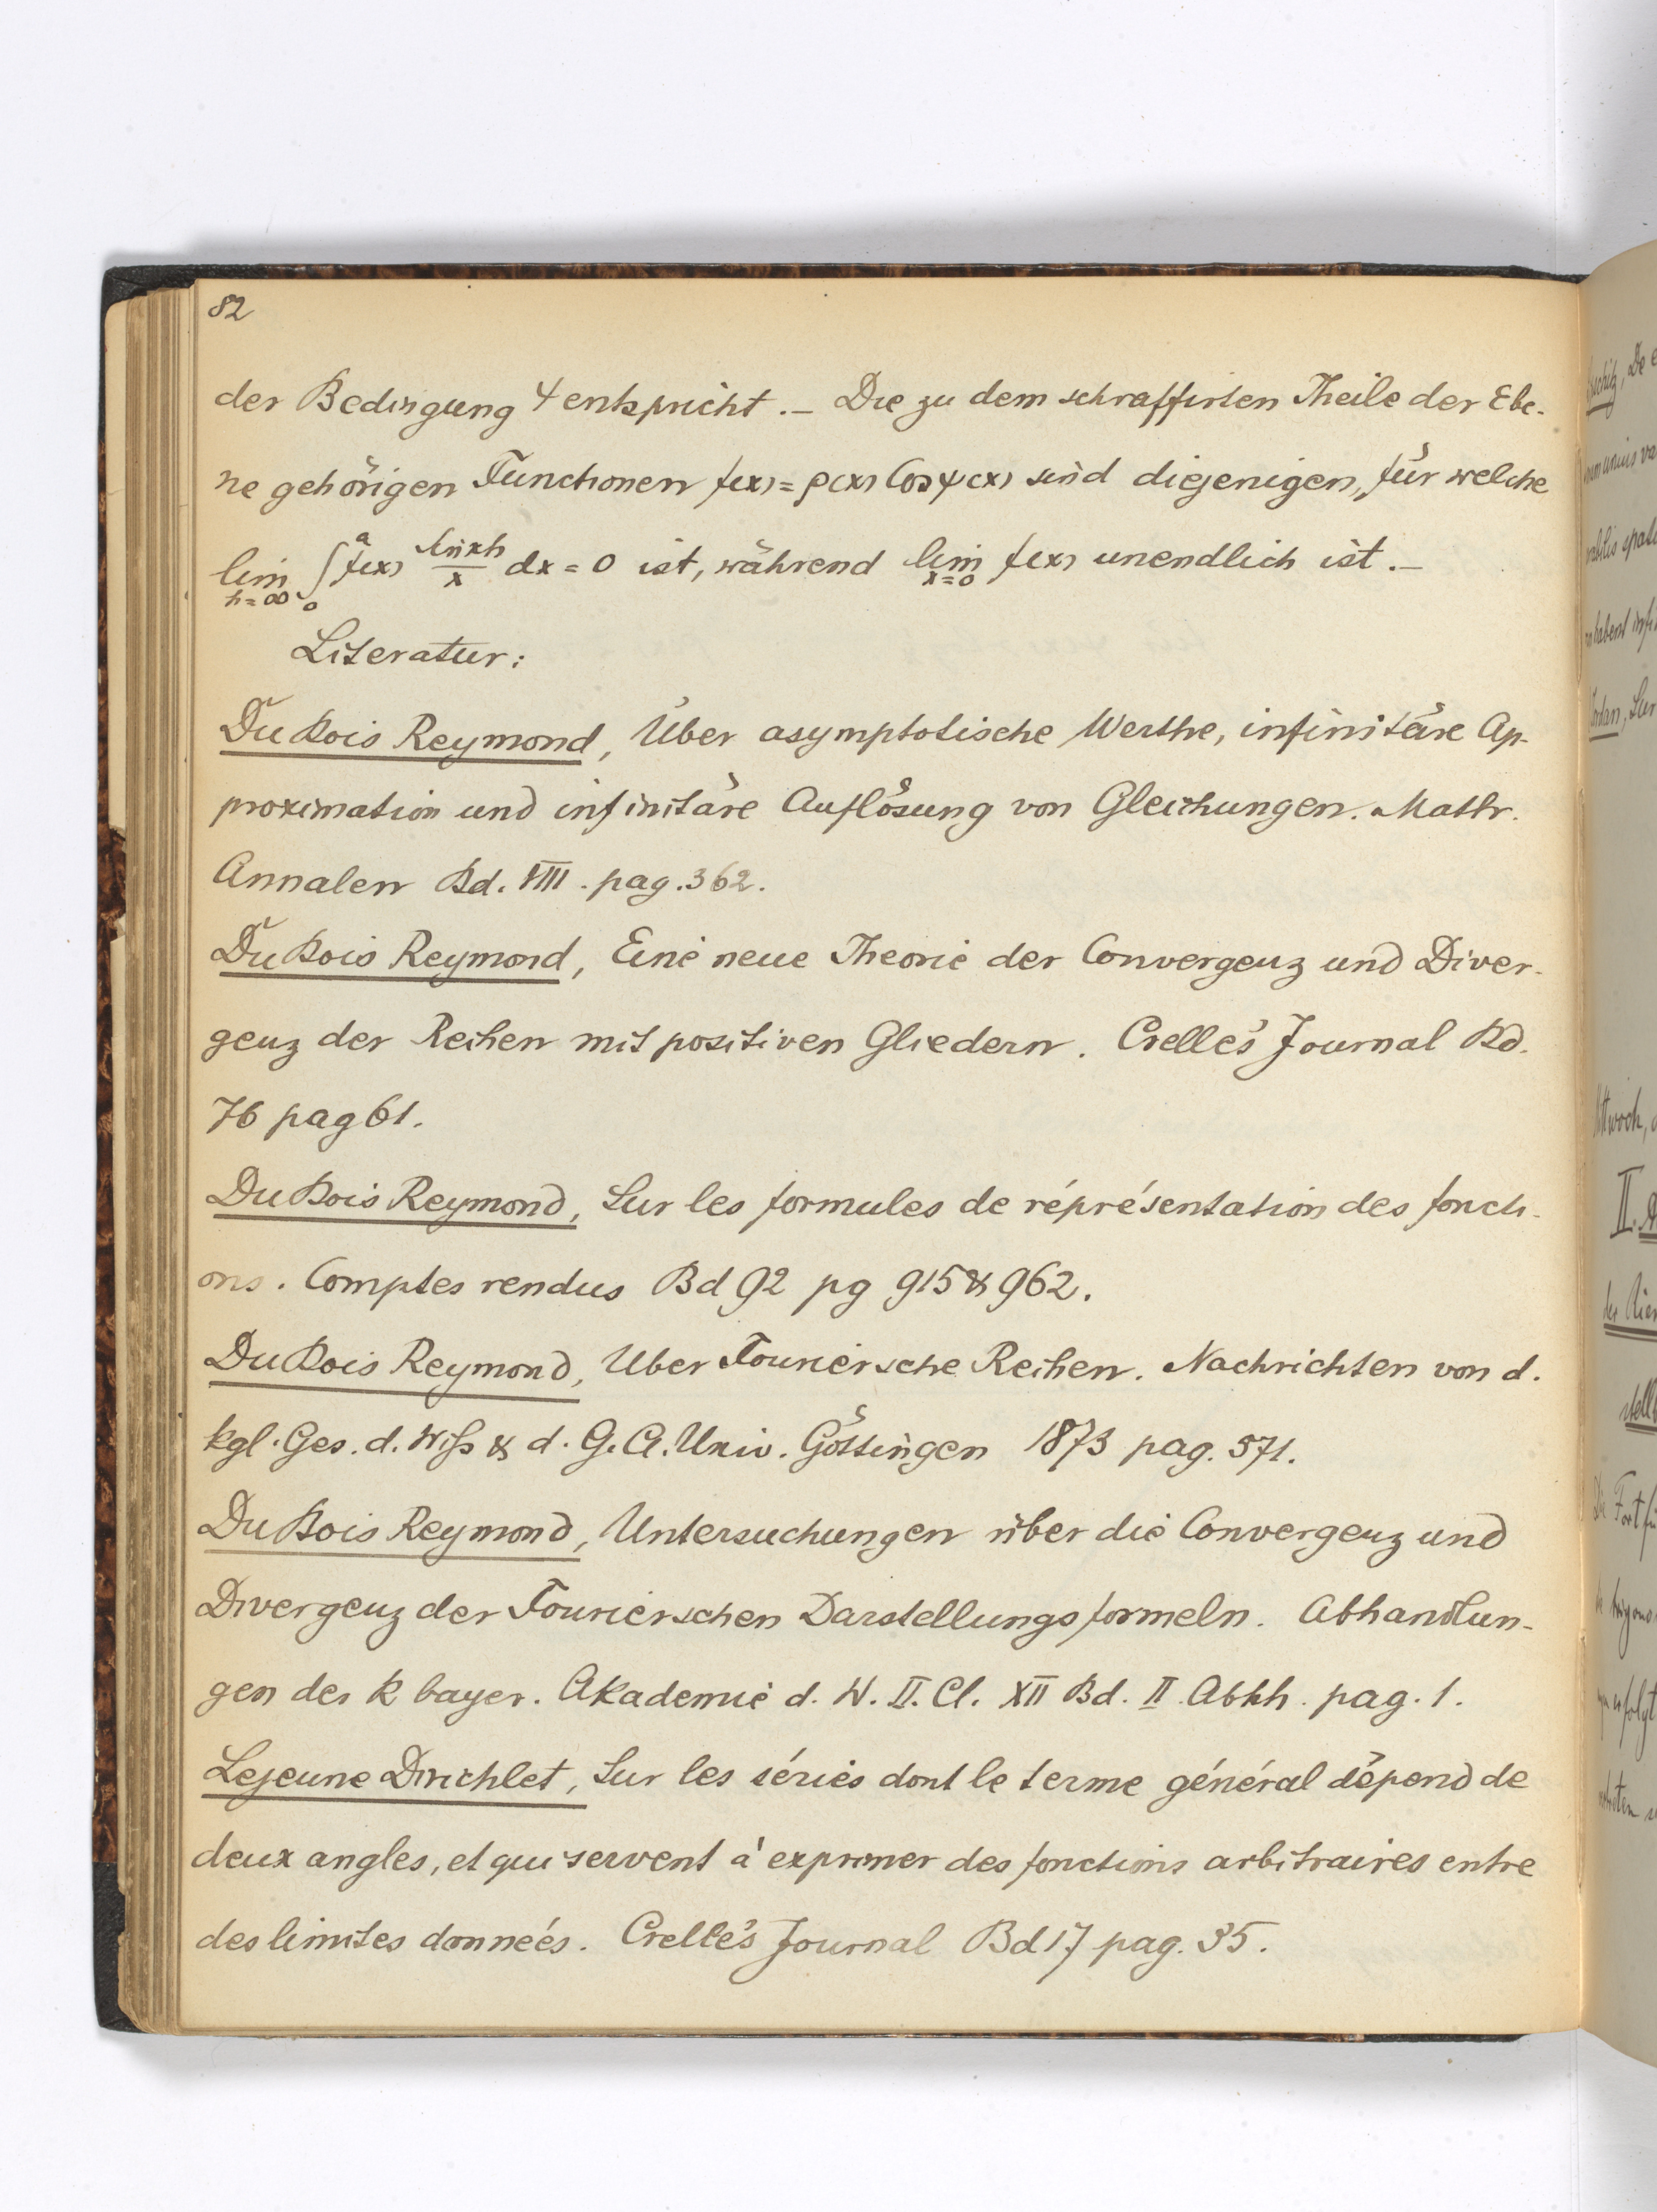 82
der Bedingung 4 entspricht. – Die zu dem schraffirten Theile der Ebe-
ne gehörigen Functionen f(x) = ρ(x) Cos ψ(x) sind diejenigen, für welche
lim h=∞ ∫₀ᵃ f(x) sin xh / x dx = 0 ist, während lim x=0 f(x) unendlich ist. –
Literatur:
Du Bois Reymond, Über asymptotische Werthe, infinitäre Ap-
proximation und infinitäre Auflösung von Gleichungen. Math.
Annalen Bd. VIII. pag. 362.
Du Bois Reymond, Eine neue Theorie der Convergenz und Diver-
genz der Reihen mit positiven Gliedern. Crelle's Journal Bd.
76 pag 61.
Du Bois Reymond, Sur les formules de répré́sentation des foncti-
ons. Comptes rendus Bd 92 pg 915 & 962.
Du Bois Reymond, Uber Fourier'sche Reihen. Nachrichten von d.
kgl. Ges. d. Wiss & d. G. A. Univ. Göttingen 1873 pag. 571.
Du Bois Reymond, Untersuchungen über die Convergenz und
Divergenz der Fourierschen Darstellungsformeln. Abhandlun-
gen der k bayer. Akademie d. W. II. Cl. XII Bd. II Abhh. pag. 1.
Lejeune Dirichlet, Sur les séries dont le terme général dépend de
deux angles, et qui servent à exprimer des fonctions arbitraires entre
des limites données. Crelle's Journal Bd 17 pag. 35.